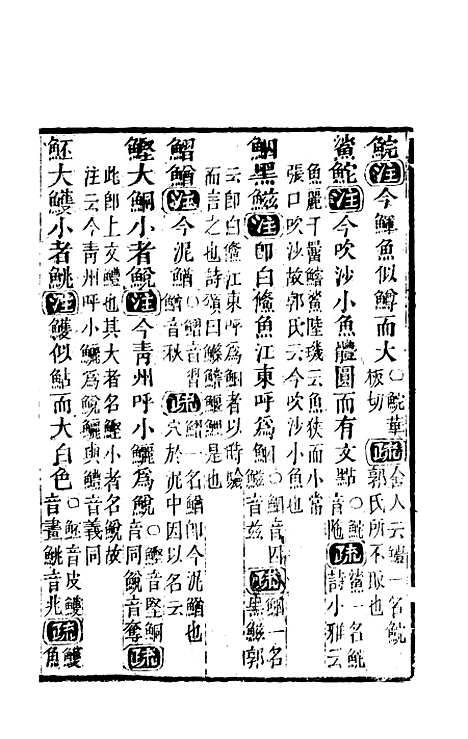 鯇注今鯶魚似鱒而大○鯇華板切疏舍人云鱧一名鯇郭氏所不取也
鯊鮀注今吹沙小魚體圓而有文點○鮀音陁疏鯊一名鮀詩小雅云
魚麗于罶鱨鯊陸璣云魚狹而小常
張口吹沙故郭氏云今吹沙小魚也
鮂黑鰦注即白鯈魚江東呼爲鮂○鮂音囚鰦音兹疏鮂一名黑鰦郭
云即白鯈江東呼爲鮂者以時驗
而言之也詩頌曰鰷鱨鰋鯉是也
鰼鰌注今泥鰌○鰼音習鰌音秋疏鰼一名鰌即今泥鰌也穴於泥中因以名云
鰹大鮦小者鮵注今青州呼小鱺爲鮵○鰹音堅鮦音同鮵音奪疏
此即上文鱧也其大者名鰹小者名鮵故
注云今青州呼小鱺爲鮵鱺與鱧音義同
魾大鱯小者鮡注鱯似鮎而大白色○魾音皮鱯音畫鮡音兆疏鱯魚